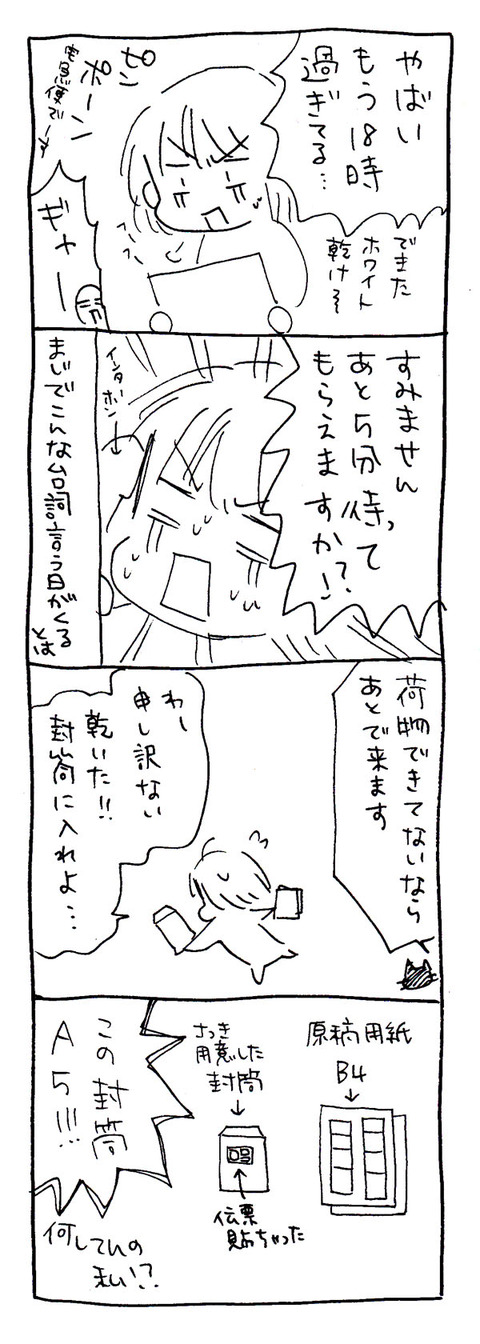 やばい
もう18時
過ぎてる…
できた
ホワイト
乾けぇ
ピン
ポーン
宅急便でーす
ギャー
すみません
あと5分待って
もらえますか!?
インターホン
まじでこんな台詞言う日がくる
とは
荷物できてないなら
あとで来ます
わー
申し訳ない
乾いた!!
封筒に入れよ…
原稿用紙
B4
さっき
用意した
封筒
伝票
貼っちゃった
この封筒
A5!!!
何してんの
私!?